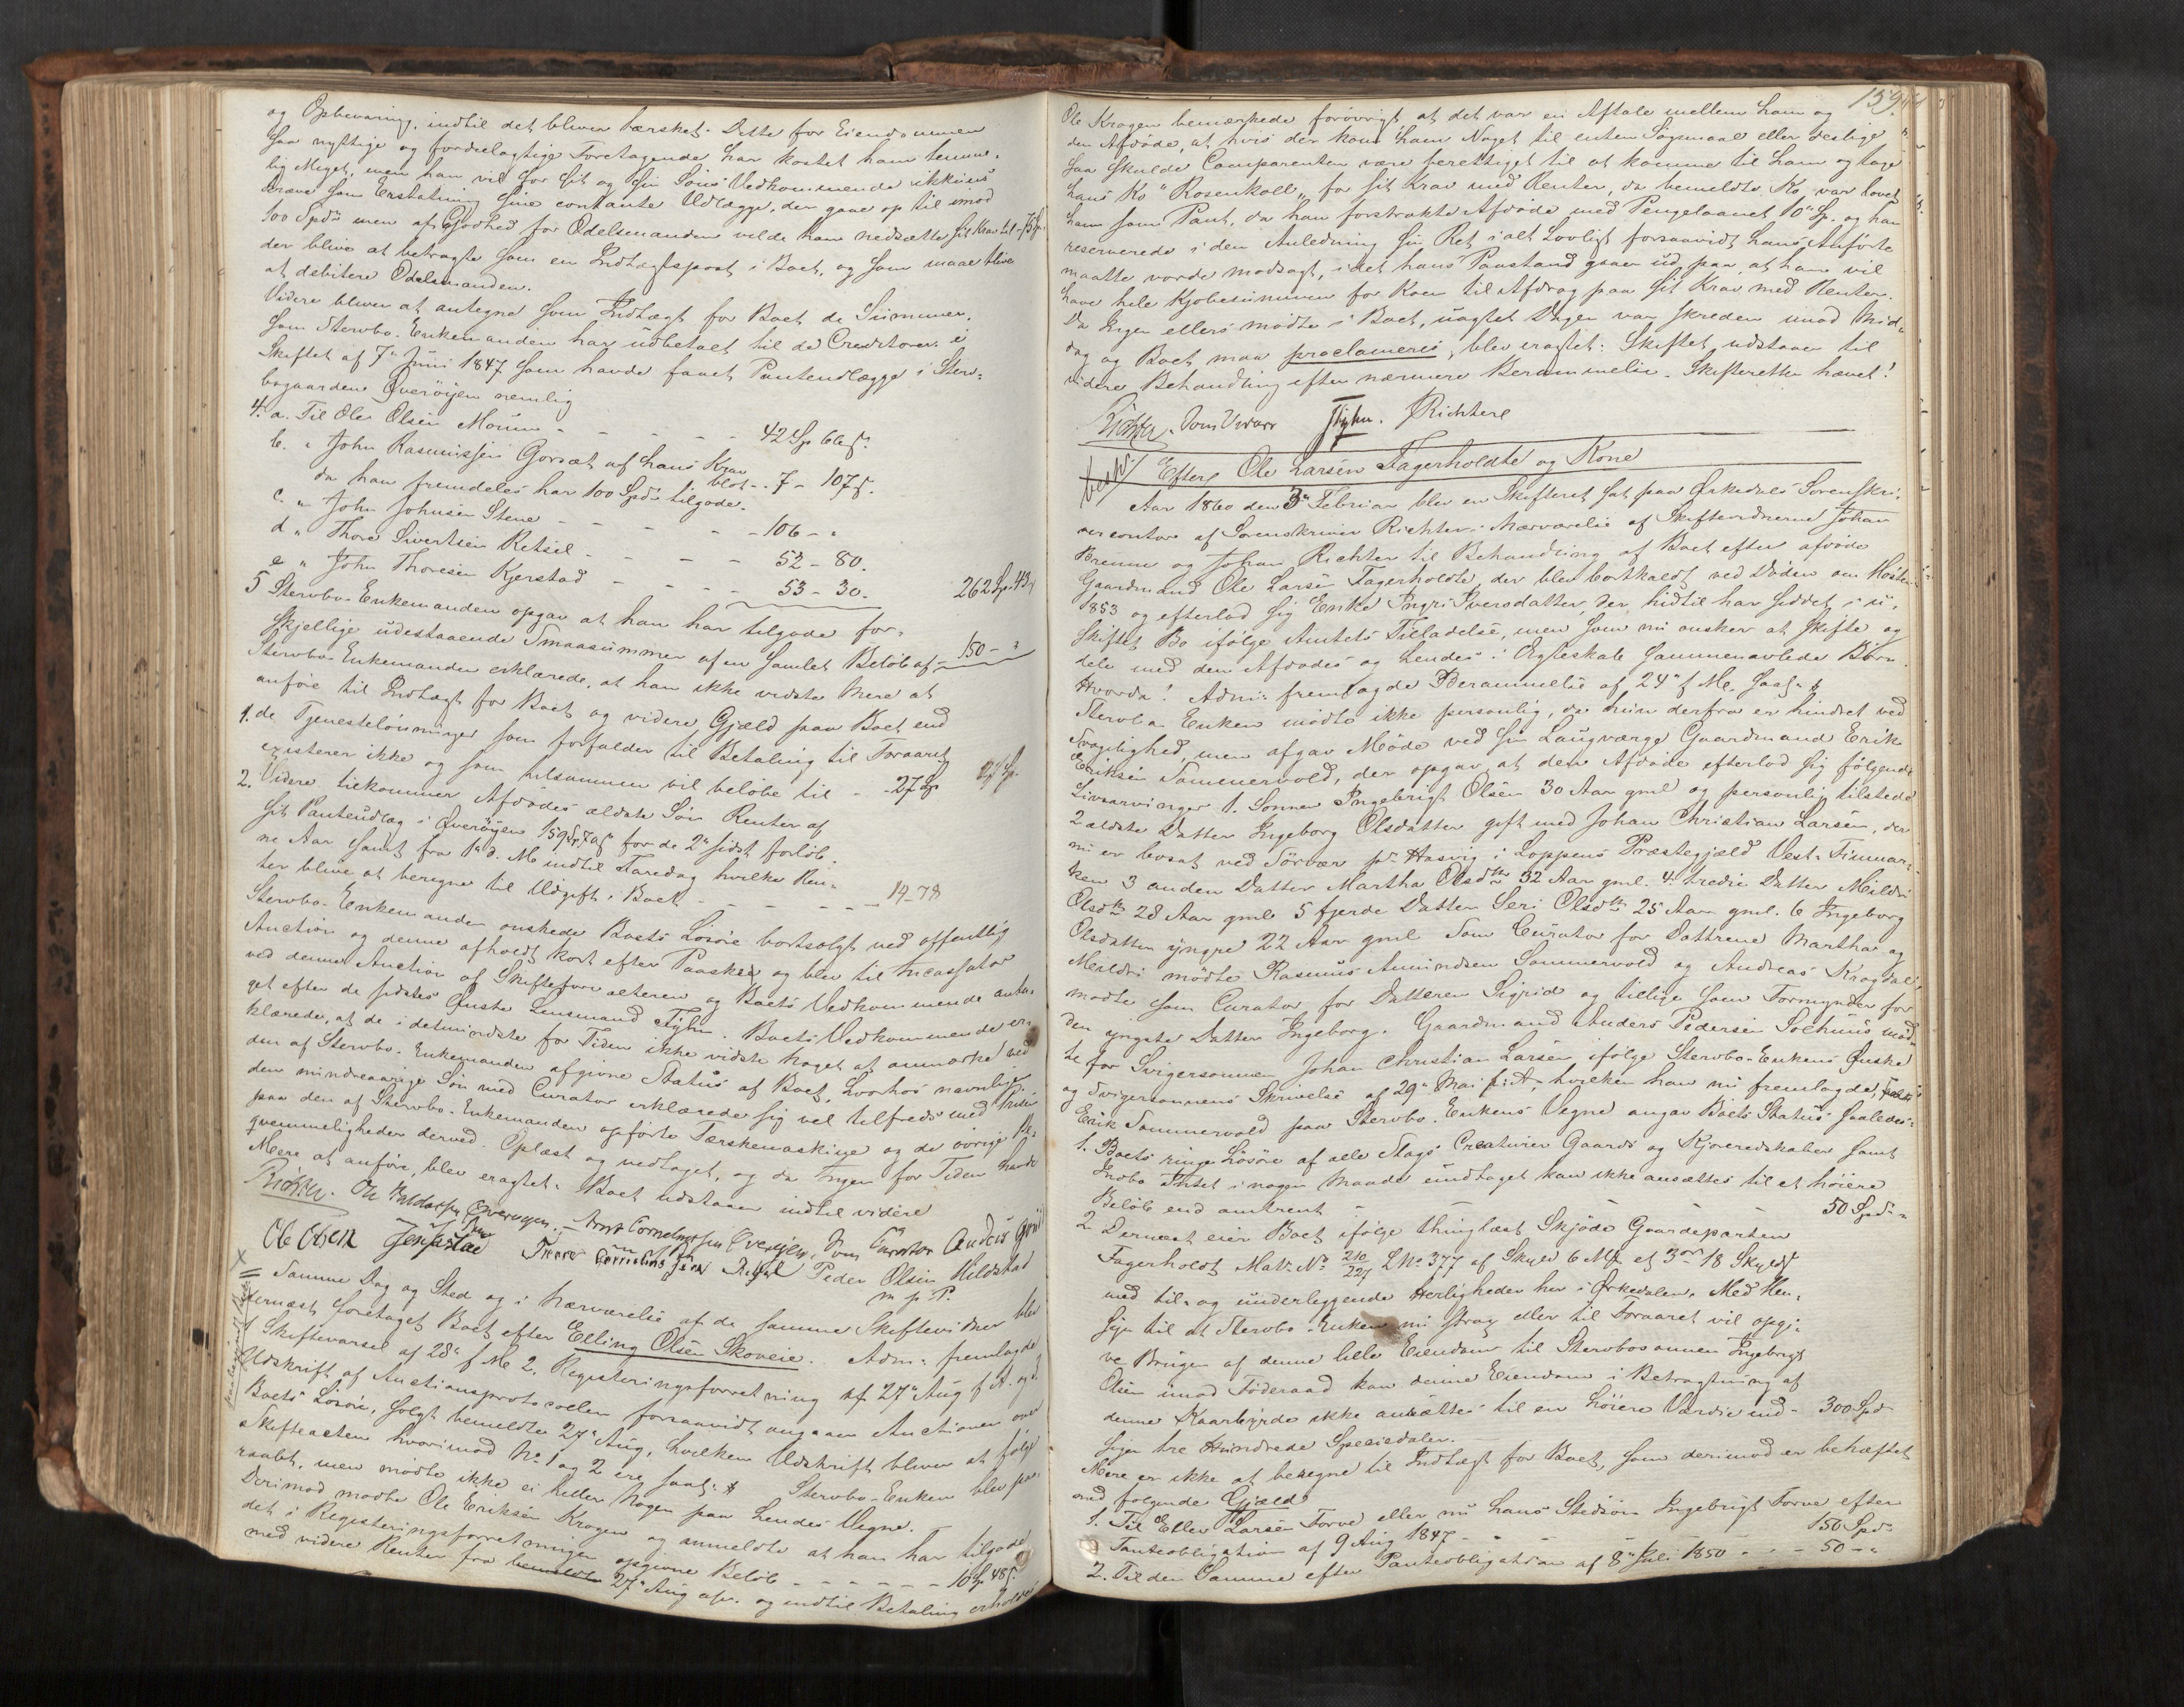 og Opbevaring, indtil det bliver tærsket. Dette for Eiendommen
saa nyttige og fordeelagtige Foretagende har kostet ham temme-
lig Meget, men han vil for sit og sin Söns Vedkommende ikkuns
kræve som Erstatning sine contante Udlægge, der gaae op til imod
100 Spd men af Godhed for Odelsmanden vilde han nedsætte sit Krav til 75 Sp
der blive at betragte som en Indtægtspost i Boet, og som maae blive
at debitere Odelsmanden.
Videre bliver at antegne som Indtægt for Boet de Summer,
som Stervbo-Enkemanden har udbetalt til de Creditorer i
Skiftet af 7de Juni 1847 som havde faaet Panteudlægge i Sterv-
bogaarden Qveröyen nemlig
4. a. Til Ole Olsen Moum - - - - 42 Sp 66 s.
b. " John Rasmussen Gorsæt af hans Krav
blot - 7 - 107 s.
da han fremdeles har 100 Spd tilgode.
c. " John Johnsen Stene - - - - 106 - "
d. " Thore Sivertsen Retsel - - - - 52 - 80.
e " John Thoresen Kjerstad - - - - 53 - 30. 262 Sp 43 s
5 Stervbo-Enkemanden opgav at han har tilgode for-
skjellige udestaaende Smaasummer af en samlet Belöb af - 150 - "
Stervbo-Enkemanden erklærede, at han ikke vidste mere at
anföre til Indtægt for Boet og videre Gjæld paa Boet end
1. de Tjenestelönninger som forfalder til Betaling til Foraaret
existerer ikke og som tilsammen vil belöbe til - - 27 Sp
2. Videre tilkommer Afdödes ældste Sön Renter af
sit Panteudlæg i Qveröyen 159 Sp 7 s for de 2de sidst forlöb-
ne Aar samt fra 1te d. M indtil Faredag hvilke Ren-
ter blive at beregne til Udgift i Boet - - - - 14-78
Stervbo-Enkemanden önskede Boets Lösöre bortsolgt ved offentlig
Auction og denne afholdt kort efter Paaske og blev til Incassator
ved denne Auction af Skifteforvalteren og Boets Vedkommende anta-
get efter de sidstes Önske Lensmand Flyhn. Boets Vedkommende er-
klærede, at de i detmindste for Tiden ikke vidste noget at anmærke ved
den af Stervbo-Enkemanden afgivne Status af Boet, hvorhos navnlig
den mindreaarige Sön med Curator erklærede sig vel tilfreds med Prisen
paa den af Stervbo-Enkemanden opförte Tærskemaskine og de övrige Be-
qvemmeligheder derved. Oplæst og vedtaget, og da Ingen for Tiden havde
Mere at anföre, blev eragtet: Boet udstaaer indtil videre
Richter.
Ole Olsen Peder Olsen Hildstad
m. p. P.
Samme Dag og Sted og i Nærværelse af de samme Skiftevidner blev
dernæst foretaget Boet efter Elling Olsen Skoveie. Adm: fremlagde
1 Skiftevarsel af 28de f M 2. Registeringsforretning af 27de Aug f A. og 3
Udskrift af Auctionsprotocollen forsaavidt angaaer Auctionen over
Boets Lösöre, solgt bemeldte 27de Aug, hvilken Udskrift bliver at fölge
Skifteacten hvorimod No 1 og 2 ere saal: Stervbo-Enken blev paa-
raabt, men mödte ikke ei heller Nogen paa hendes Vegne.
Derimod mödte Ole Eriksen Kragen og anmeldte at han har tilgode
det i Registeringsforretningen opgivne Belöb - - - - - 10 Sp 48 s.
med videre Renter fra bemeldte 27de Aug af og indtil Betaling erholdes
159
Ole Kragen bemærkede forövrigt at det var en Aftale mellem ham og
den Afdöde, at hvis der kom ham Noget til enten Sögsmaal eller deslige
saa skulde Comparenten være berettiget til at komme til ham og tage
hans Ko "Rosenkoll" for sit Krav med Renter, da bemeldte Ko var lovet
ham som Pant, da han forstrakte Afdöde med Pengelaanet 10 Sp. og han
reserverede i den Anledning sin Ret i alt Lovligt forsaavidt hans Anförte
maatte vorde modsagt, idet hans Paastand gaaer ud paa, at han vil
have hele Kjöbesummen for Koen til Afdrag paa sit Krav med Renter.
Da Ingen ellers mödte i Boet, uagtet Dagen var skreden imod Mid-
dag og Boet maa proclameres, blev eragtet: Skiftet udstaaer til
videre Behandling efter nærmere Berammelse. Skifteretten hævet!
Richter. Som Vidner Flyhn. JRichter
Efter Ole Larsen Fagerholdte og Kone
Aar 1860 den 3de Februar blev en Skifteret sat paa Örkedals Sorenskri-
vercontor af Sorenskriver Richter i Nærværelse af Skiftevidnerne Johan
Brenne og Johan Richter til Behandling af Boet efter afdöde
Gaardmand Ole Larsen Fagerholdte, der blev bortkaldt ved Döden om Hösten
1853 og efterlod sig Enke Ingri Iversdatter, der hidtil har siddet i u-
skiftet Bo ifölge Amtets Tilladelse, men som nu önsker at skifte og
dele med den Afdödes og hendes i Ægteskab sammenavlede Börn.
Hvorda! Adm: fremlagde Berammelse af 24de f M. saal:
Stervbo Enken mödte ikke personlig, da hun derfra er hindret ved
Svagelighed, men afgav Möde ved sin Laugværge Gaardmand Erik
Eriksen Sommervold, der opgav at den Afdöde efterlod sig fölgende
Livsarvinger 1. Sönnen Ingebrigt Olsen 30 Aar gml og personlig tilstede
2 ældste Datter Ingeborg Olsdatter gift med Johan Christian Larsen, der
nu er bosat ved Sörvær pr Hasvig i Loppens Præstegjæld Vest-Finmar-
ken 3 anden Datter Martha Olsdtr 32 Aar gml. 4. tredie Datter Mildri
Olsdtr 28 Aar gml 5 fjerde Datter Seri Olsdtr 25 Aar gml. 6 Ingeborg
Olsdatter yngre 22 Aar gml Som Curator for Döttrene Martha og
Mildri mödte Rasmus Amundsen Sommervold og Andreas Kragdal
mödte som Curator for Datteren Sigrid og tillige som Formynder for
den yngste Datter Ingeborg. Gaardmand Anders Pedersen Solhuus möd-
te for Svigersönnen Johan Christian Larsen ifölge Stervbo-Enkens Önske
og Svigersönnens Skrivelse af 29de Mai f: A, hvilken han nu fremlagde,
Erik Sommervold paa Stervbo-Enkens Vegne angav Boets Status saaledes:
1. Boets ringe Lösöre af alle Slags Creaturer Gaards og Kjöreredskaber samt
Indbo Intet i nogen Maade undtaget kan ikke ansættes til et höiere
Belöb end omtrent - - - - 50 Spd "
2 Dernæst eier Boet ifölge thinglæst Skjöde Gaardeparten
Fagerholdt Matr No 210/227 LNo 377 af Skyld 6 Mk et 3 ort 18 Skyld
med til- og underliggende Herligheder her i Örkedalen. Med Hen-
syn til at Stervbo-Enken nu strax eller til Foraaret vil opgi-
ve Brugen af denne lille Eiendom til Stervbosönnen Ingebrigt
Olsen imod Föderaad kan denne Eiendom i Betragtning af
denne Kaarbyrde ikke ansættes til en höiere Værdie end - 300 Spd
siger tre Hundrede Speciedaler.
Mere er ikke at beregne til Indtægt for Boet, som derimod er behæftet
med fölgende Gjæld
1. Til Ellev Larsen Forve eller nu hans Stedsön Ingebrigt Forve efter
Panteobligation af 9 Aug 1847 - - - - 150 Spd
2. Til den Samme efter Panteobligation af 8de Juli 1850 - - - 50 - "